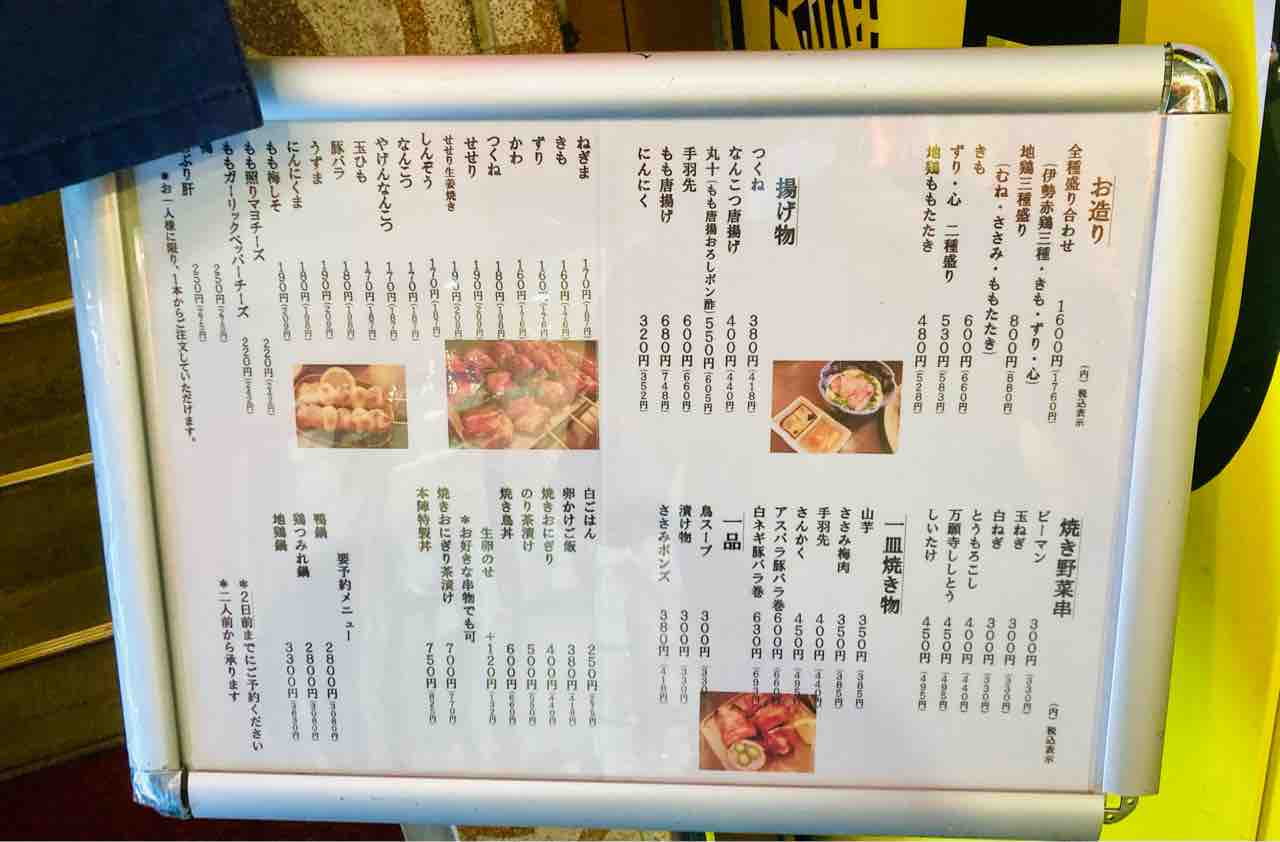 お造り
(内)税込表示
全種盛り合わせ 1600円(1760円)
(伊勢赤鶏三種・きも・ずり・心)
地鶏三種盛り 800円(880円)
(むね・ささみ・ももたたき)
きも 600円(660円)
ずり・心 二種盛り 530円(583円)
地鶏ももたたき 480円(528円)
揚げ物
つくね 380円(418円)
なんこつ唐揚げ 400円(440円)
丸十(もも唐揚おろしポン酢) 550円(605円)
手羽先 600円(660円)
もも唐揚げ 680円(748円)
にんにく 320円(352円)
ねぎま 170円(187円)
きも 160円(176円)
ずり 160円(176円)
かわ 160円(176円)
つくね 180円(198円)
せせり 190円(209円)
せせり生姜焼き 190円(209円)
しんぞう 170円(187円)
なんこつ 170円(187円)
やげんなんこつ 170円(187円)
玉ひも 170円(187円)
豚バラ 180円(198円)
うずま 190円(209円)
にんにくま 180円(198円)
もも梅しそ 190円(209円)
もも照りマヨチーズ 220円(242円)
ももガーリックペッパーチーズ 220円(242円)
鴨 250円(275円)
ぶり肝 250円(275円)
*お一人様に限り、1本からご注文していただけます。
焼き野菜串
(内)税込表示
ピーマン 300円(330円)
玉ねぎ 300円(330円)
白ねぎ 300円(330円)
とうもろこし 400円(440円)
万願寺ししとう 450円(495円)
しいたけ 450円(495円)
一皿焼き物
山芋 350円(385円)
ささみ梅肉 350円(385円)
手羽先 400円(440円)
さんかく 450円(495円)
アスパラ豚バラ巻 600円(660円)
白ネギ豚バラ巻 630円(693
一品
鳥スープ 300円(330
漬け物 300円(330円)
ささみポンズ 380円(418円)
白ごはん 250円(275円)
卵かけご飯 380円(418円)
焼きおにぎり 400円(440円)
のり茶漬け 500円(550円)
焼き鳥丼 600円(660円)
生卵のせ +120円(132円)
*お好きな串物でも可
焼きおにぎり茶漬け 700円(770円)
本陣特製丼 750円(825円)
要予約メニュー
鴨鍋 2800円(3080円)
鶏つみれ鍋 2800円(3080円)
地鶏鍋 3300円(3630円)
*2日前までにご予約ください
*二人前から承ります